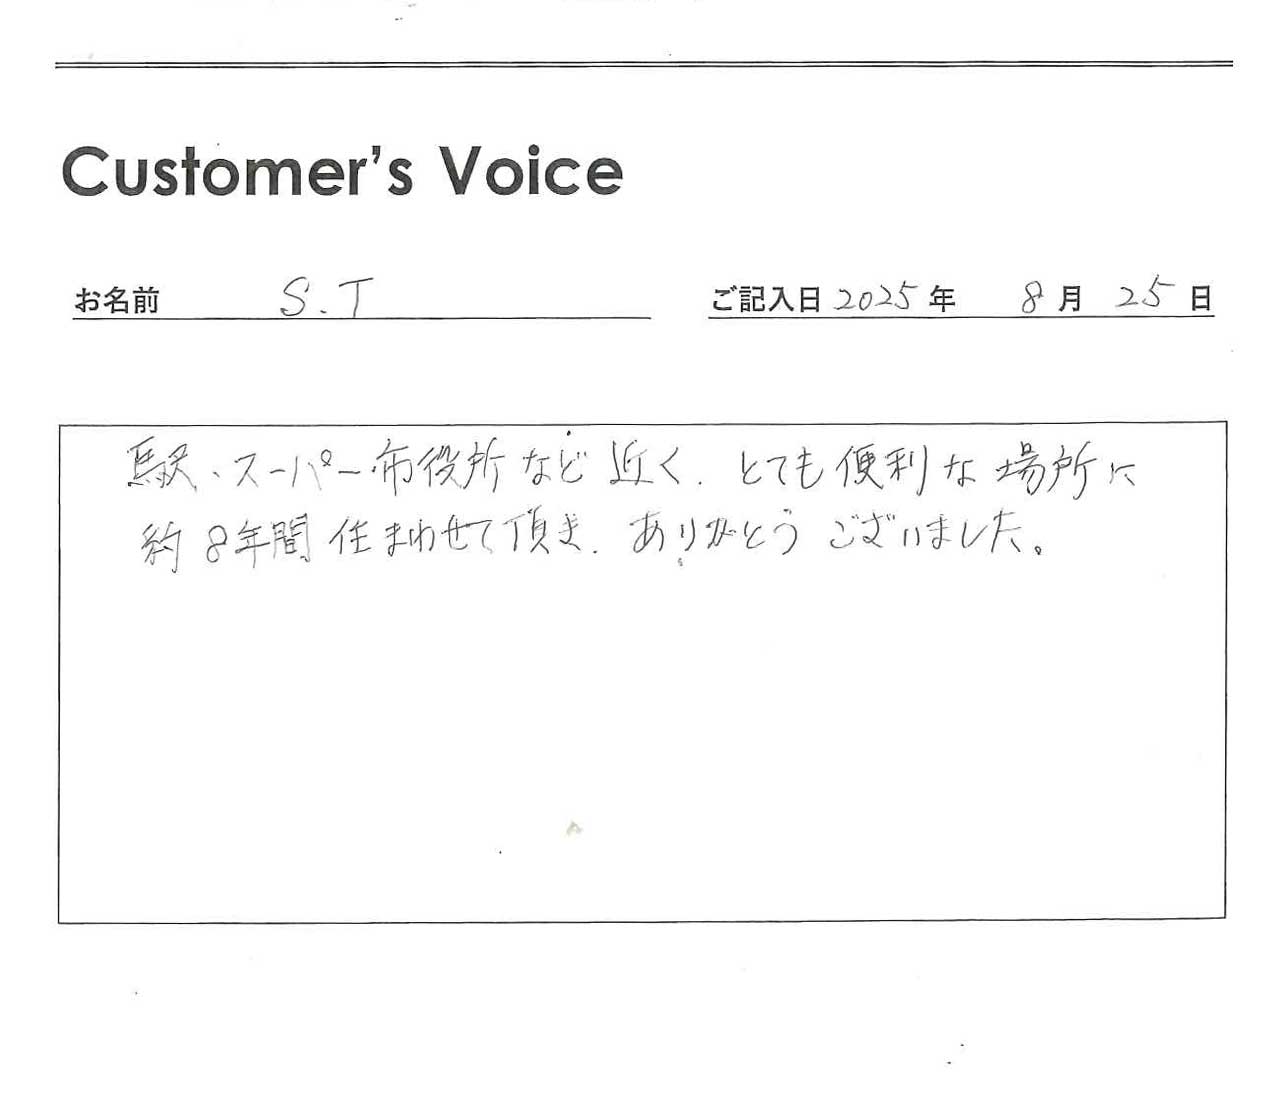 Customer's Voice
お名前 S.T ご記入日 2025 年 8 月 25 日
駅、スーパー市役所など近く、とても便利な場所に
約8年間住まわせて頂き、ありがとうございました。